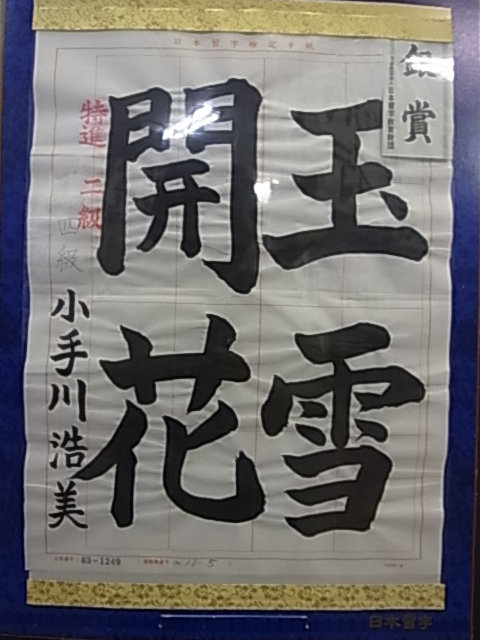 日本習字検定手紙
銀賞
日本習字教育財団
玉雪
開花
特進 二級
四級
小手川浩美
83-1249
11-5
日本習字